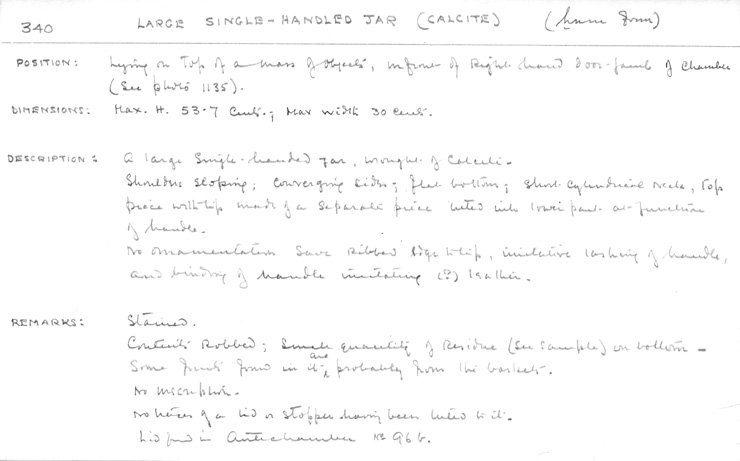 340
LARGE SINGLE-HANDLED JAR (CALCITE) (hnm form)
POSITION: Lying on top of a mass of objects, in front of Right-hand door-jamb of Chamber
(See photo 1135).
DIMENSIONS: Max. H. 53.7 Cent.; Max width 30 cent.
DESCRIPTION: A large single-handed jar, wrought of Calcite -
Shoulders sloping; converging sides; flat bottom; short cylindrical neck, top
piece with lip made of a separate piece luted into lower part at junction
of handle.
No ornamentation save Ribbed edge to lip, imitative lashing of handle,
and binding of handle imitating (?) leather.
REMARKS: Stained.
Contents Robbed; small quantity of Residue (See Sample) on bottom -
Some fruits found in it are probably from the baskets.
No inscription -
No traces of a lid or stopper having been luted to it.
Lid found in Antechamber No 96 b.